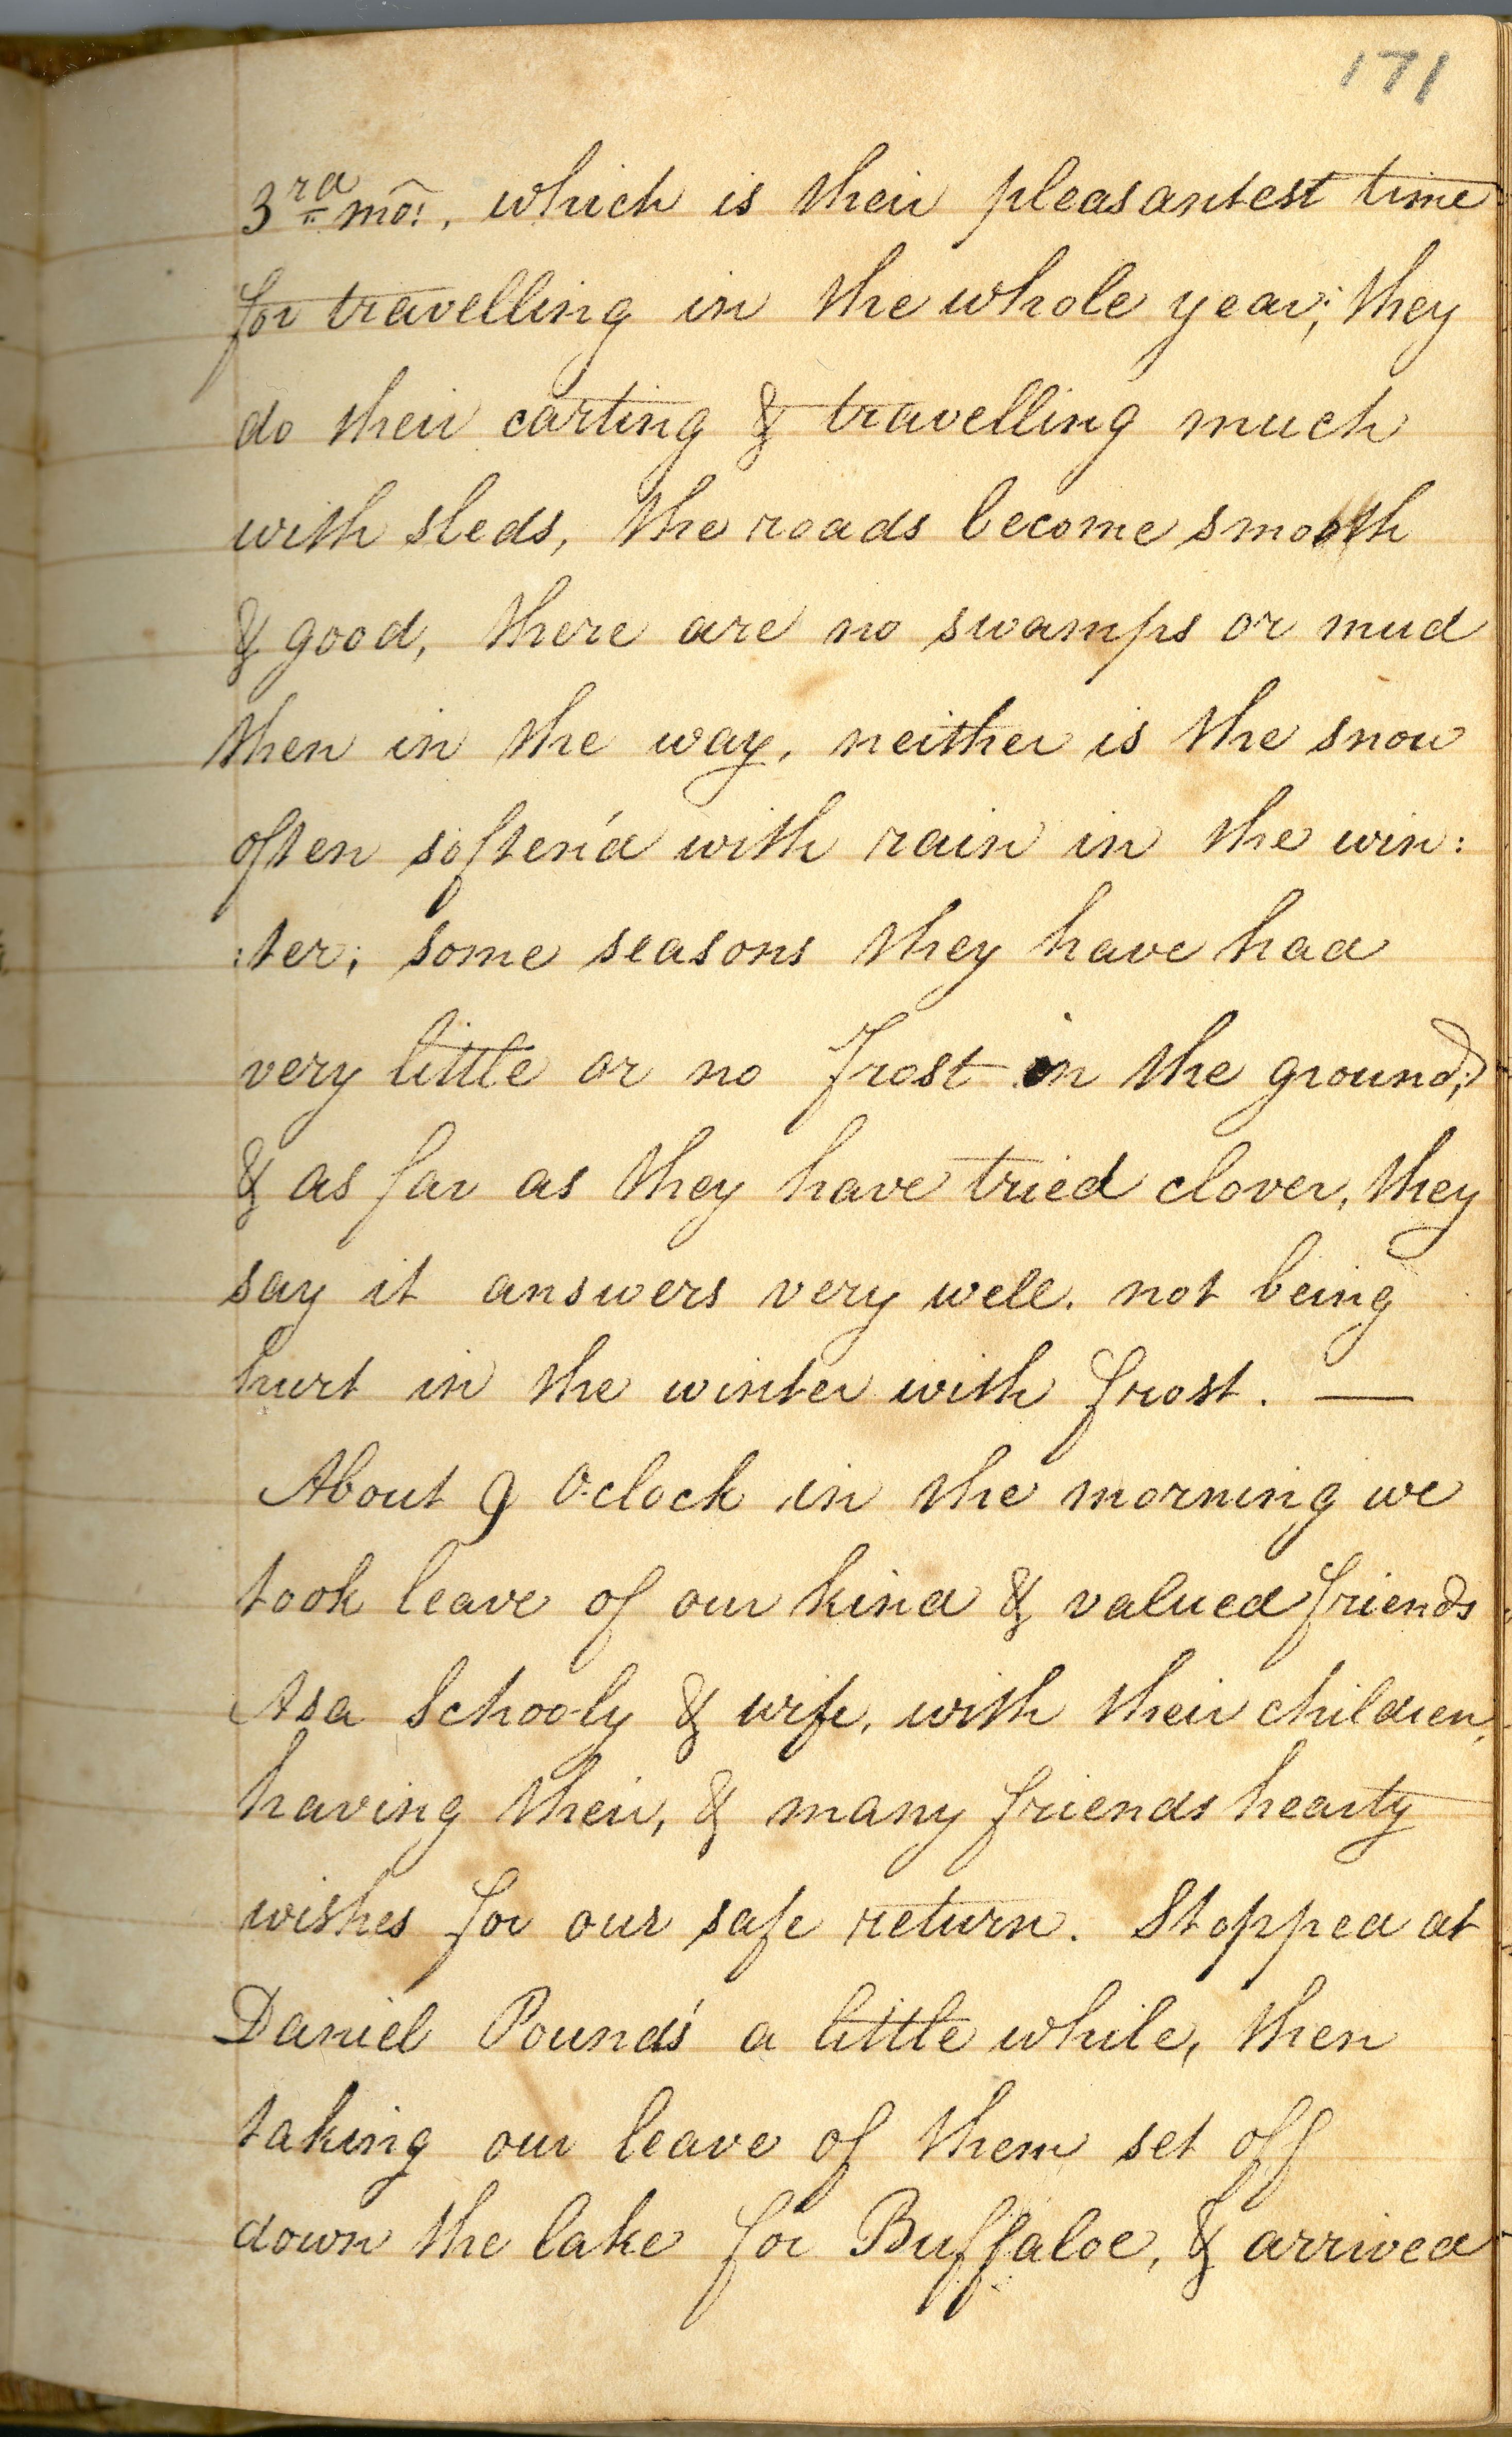 171
3rd mo:, which is their pleasantest time
for travelling in the whole year; they
do their carting & travelling much
with sleds, the roads become smooth
& good, there are no swamps or mud
then in the way, neither is the snow
often soften'd with rain in the win:
:ter; some seasons they have had
very little or no frost in the ground;
& as far as they have tried clover, they
say it answers very well. not being
hurt in the winter with frost. —
About 9 O'clock in the morning we
took leave of our kind & valued friends
Asa Schooly & wife, with their children,
having their, & many friends hearty
wishes for our safe return. Stopped at
Daniel Pound's a little while, then
taking our leave of them set off
down the lake for Buffaloe, & arrived